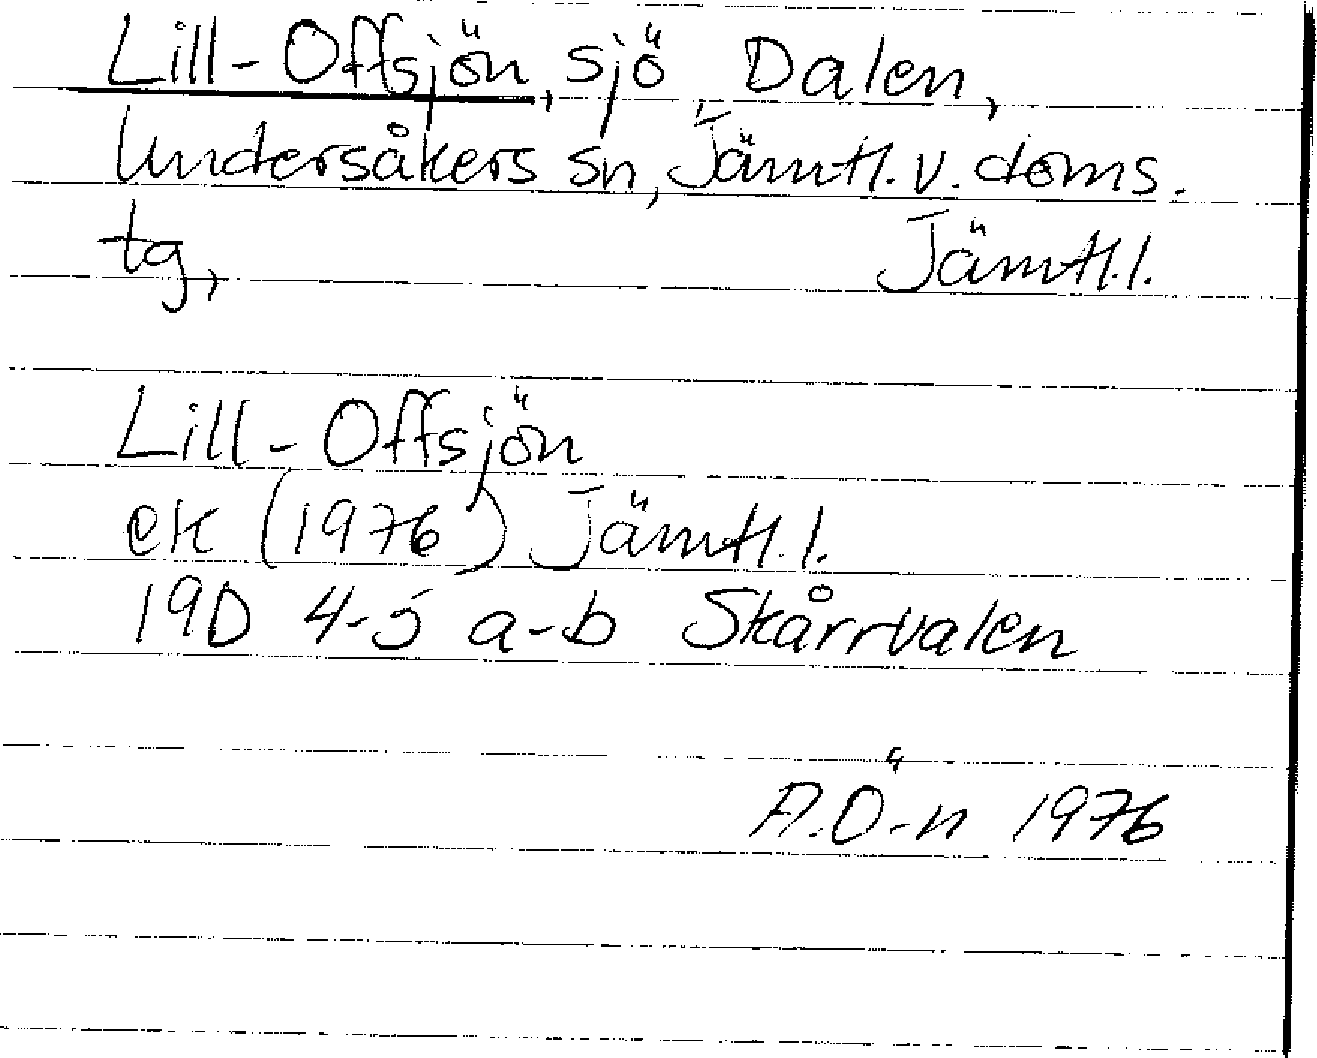 Lill-Offsjön, sjö, Dalen,
Undersåkers sn, Jämtl. v. doms.
tg, Jämtl. l.
Lill-Offsjön
ek (1976) Jämtl. l.
19D 4-5 a-b Skårrvalen
A.Ö-n 1976